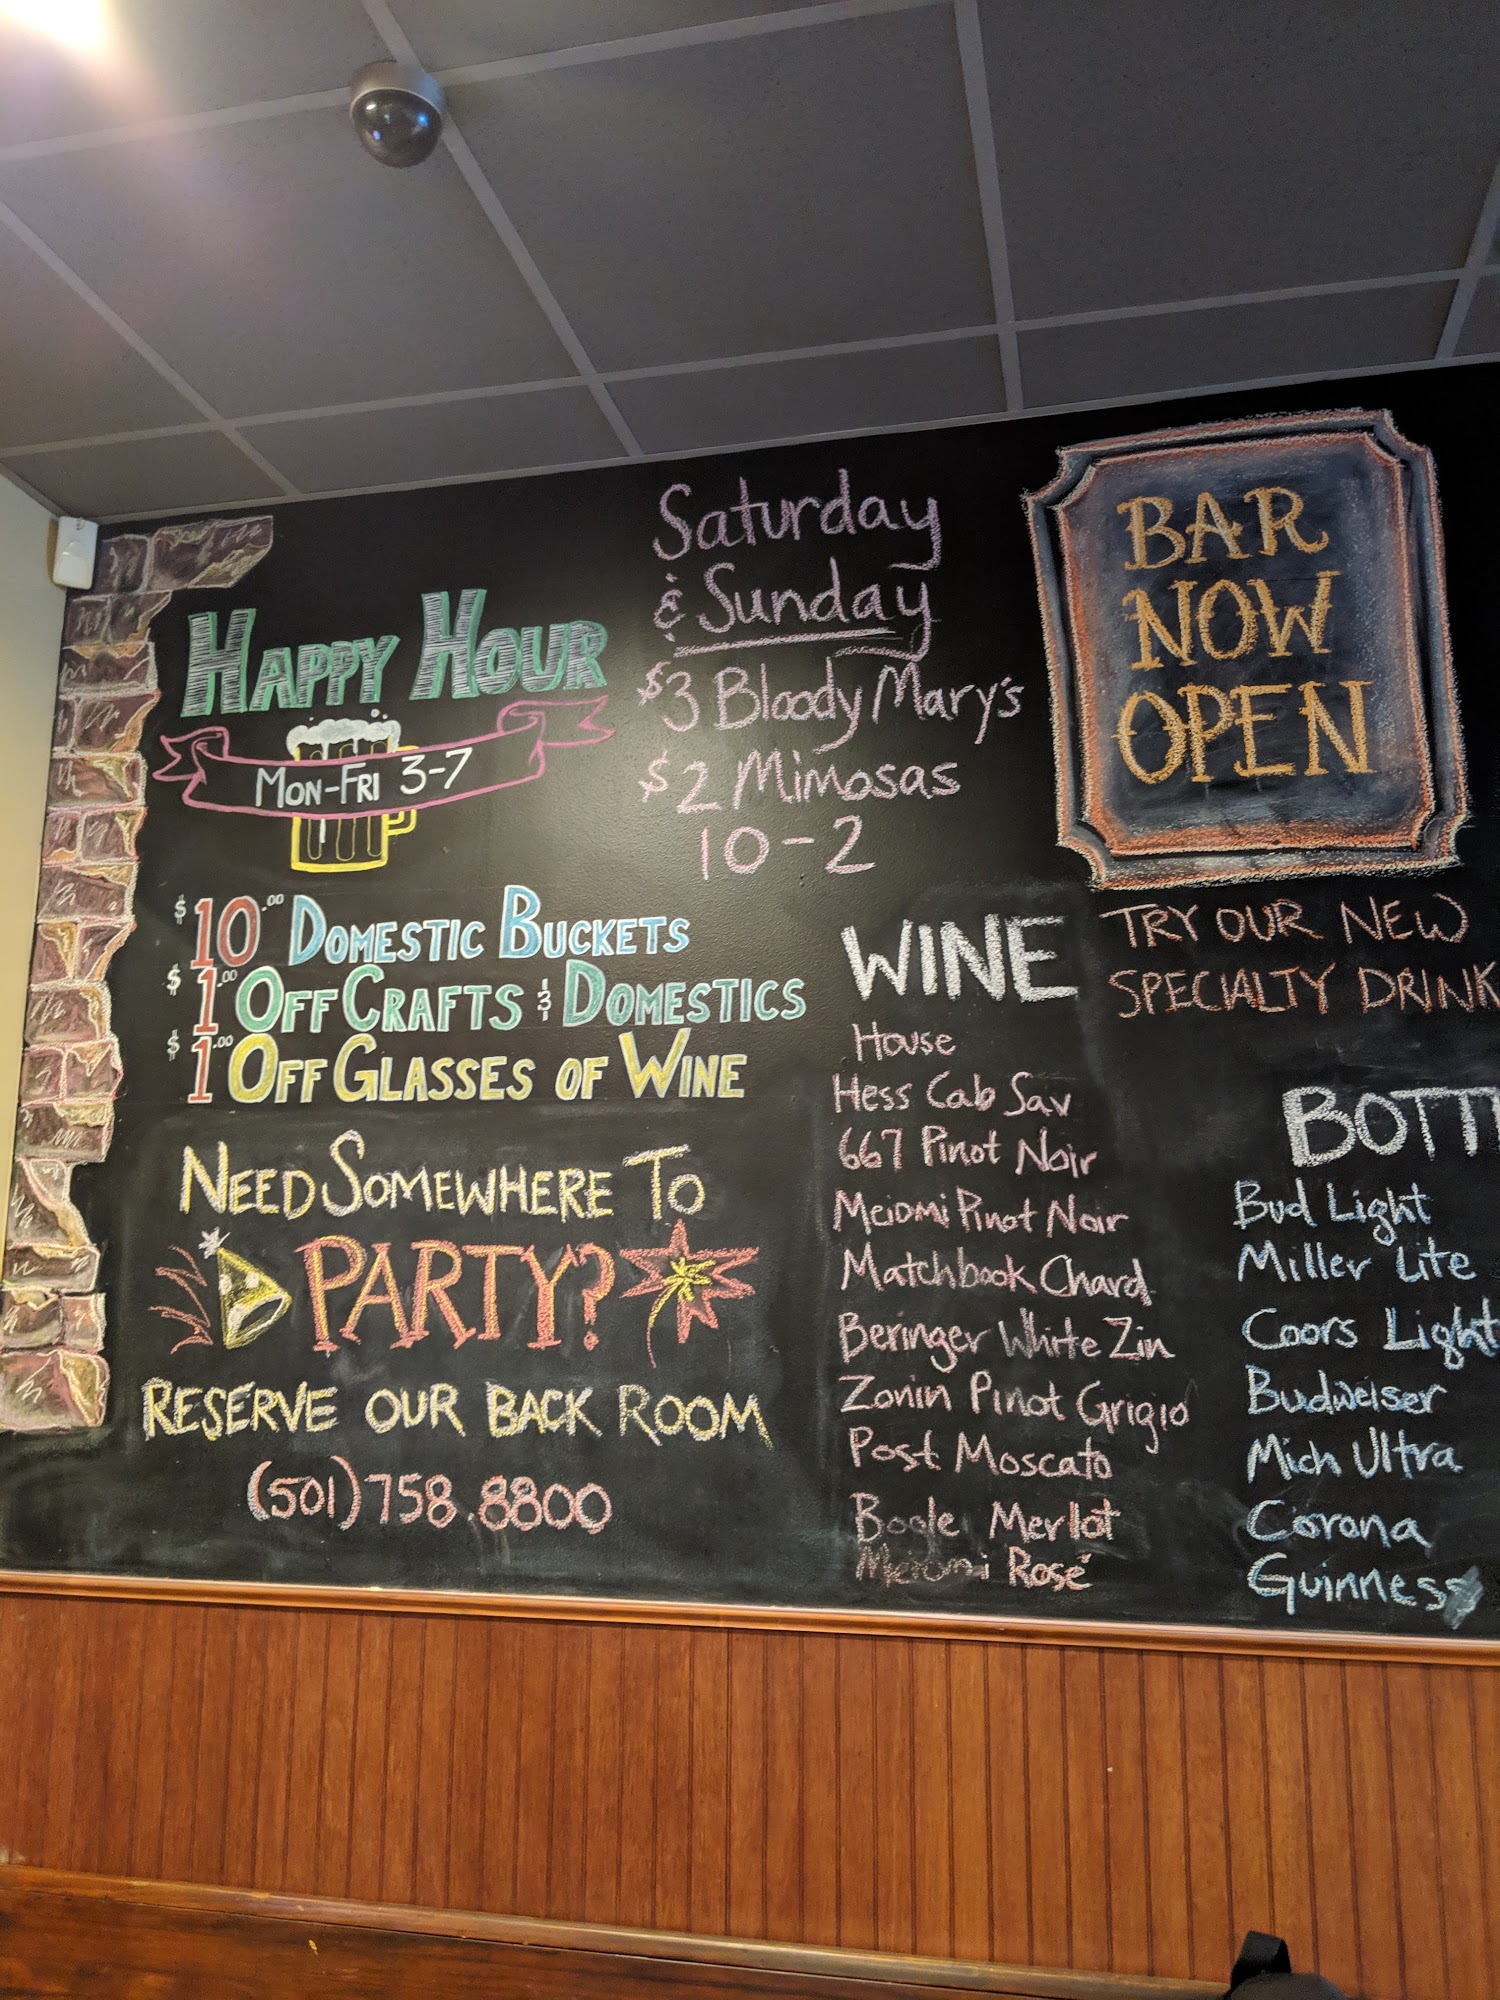 HAPPY HOUR
MON-FRI 3-7
$10.00 DOMESTIC BUCKETS
$1.00 OFF CRAFTS & DOMESTICS
$1.00 OFF GLASSES OF WINE
NEED SOMEWHERE TO
PARTY?
RESERVE OUR BACK ROOM
(501)758.8800
Saturday
& Sunday
$3 Bloody Mary's
$2 Mimosas
10-2
BAR
NOW
OPEN
TRY OUR NEW
SPECIALTY DRINK
WINE
House
Hess Cab Sav
667 Pinot Noir
Meiomi Pinot Noir
Matchbook Chard
Beringer White Zin
Zonin Pinot Grigio
Post Moscato
Bogle Merlot
Meiomi Rosé
BOTT
Bud Light
Miller Lite
Coors Light
Budweiser
Mich Ultra
Corona
Guinness